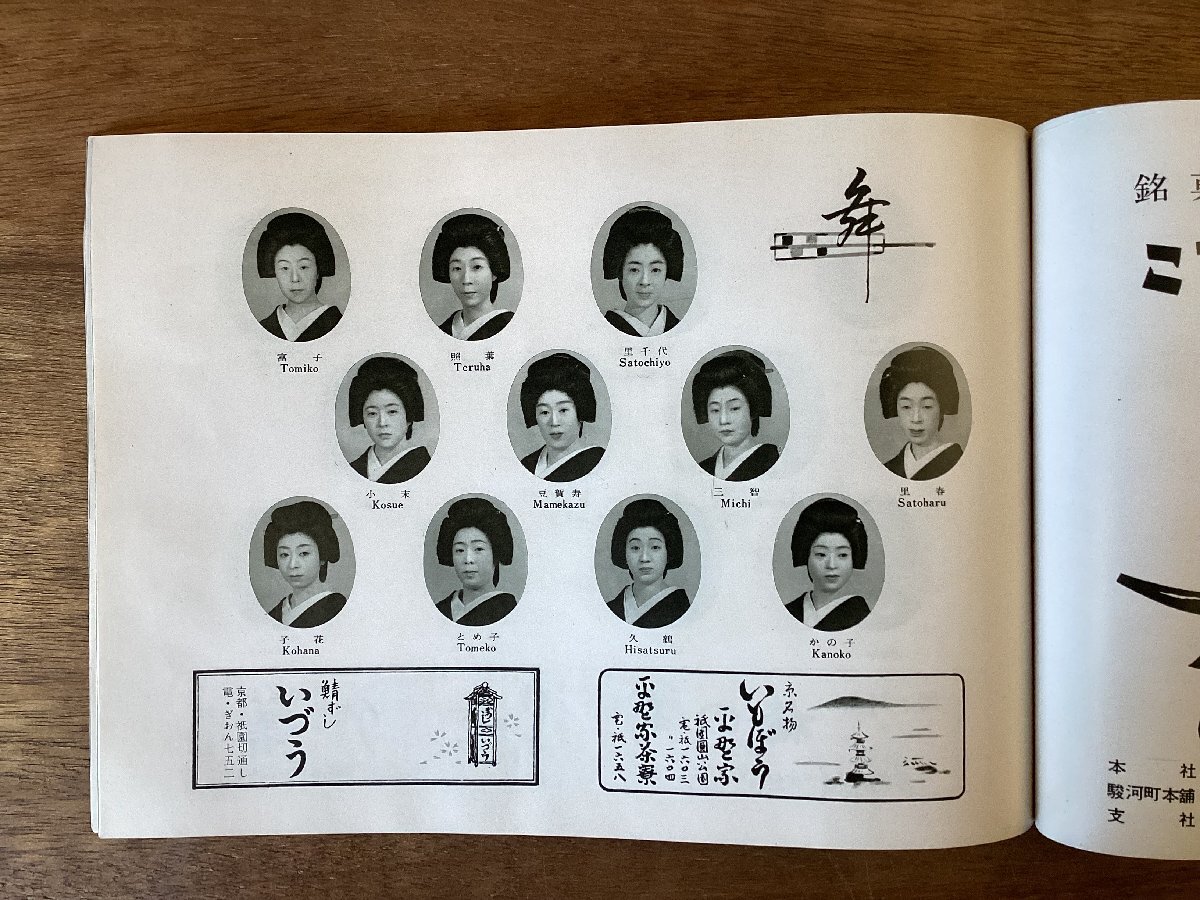 舞
富子
Tomiko
照葉
Teruha
里千代
Satochiyo
小末
Kosue
豆賀寿
Mamekazu
三智
Michi
里春
Satoharu
子花
Kohana
とめ子
Tomeko
久鶴
Hisatsuru
かの子
Kanoko
鯖ずし
いづう
京都・祇園切通し
電・ぎおん七五二
いづう
京名物
いもぼう
平野家
祇園圓山公園
電・祇一六〇三
〃一六〇四
平野家茶寮
電・祇一六五八
銘
本社
駿河町本舗
支社